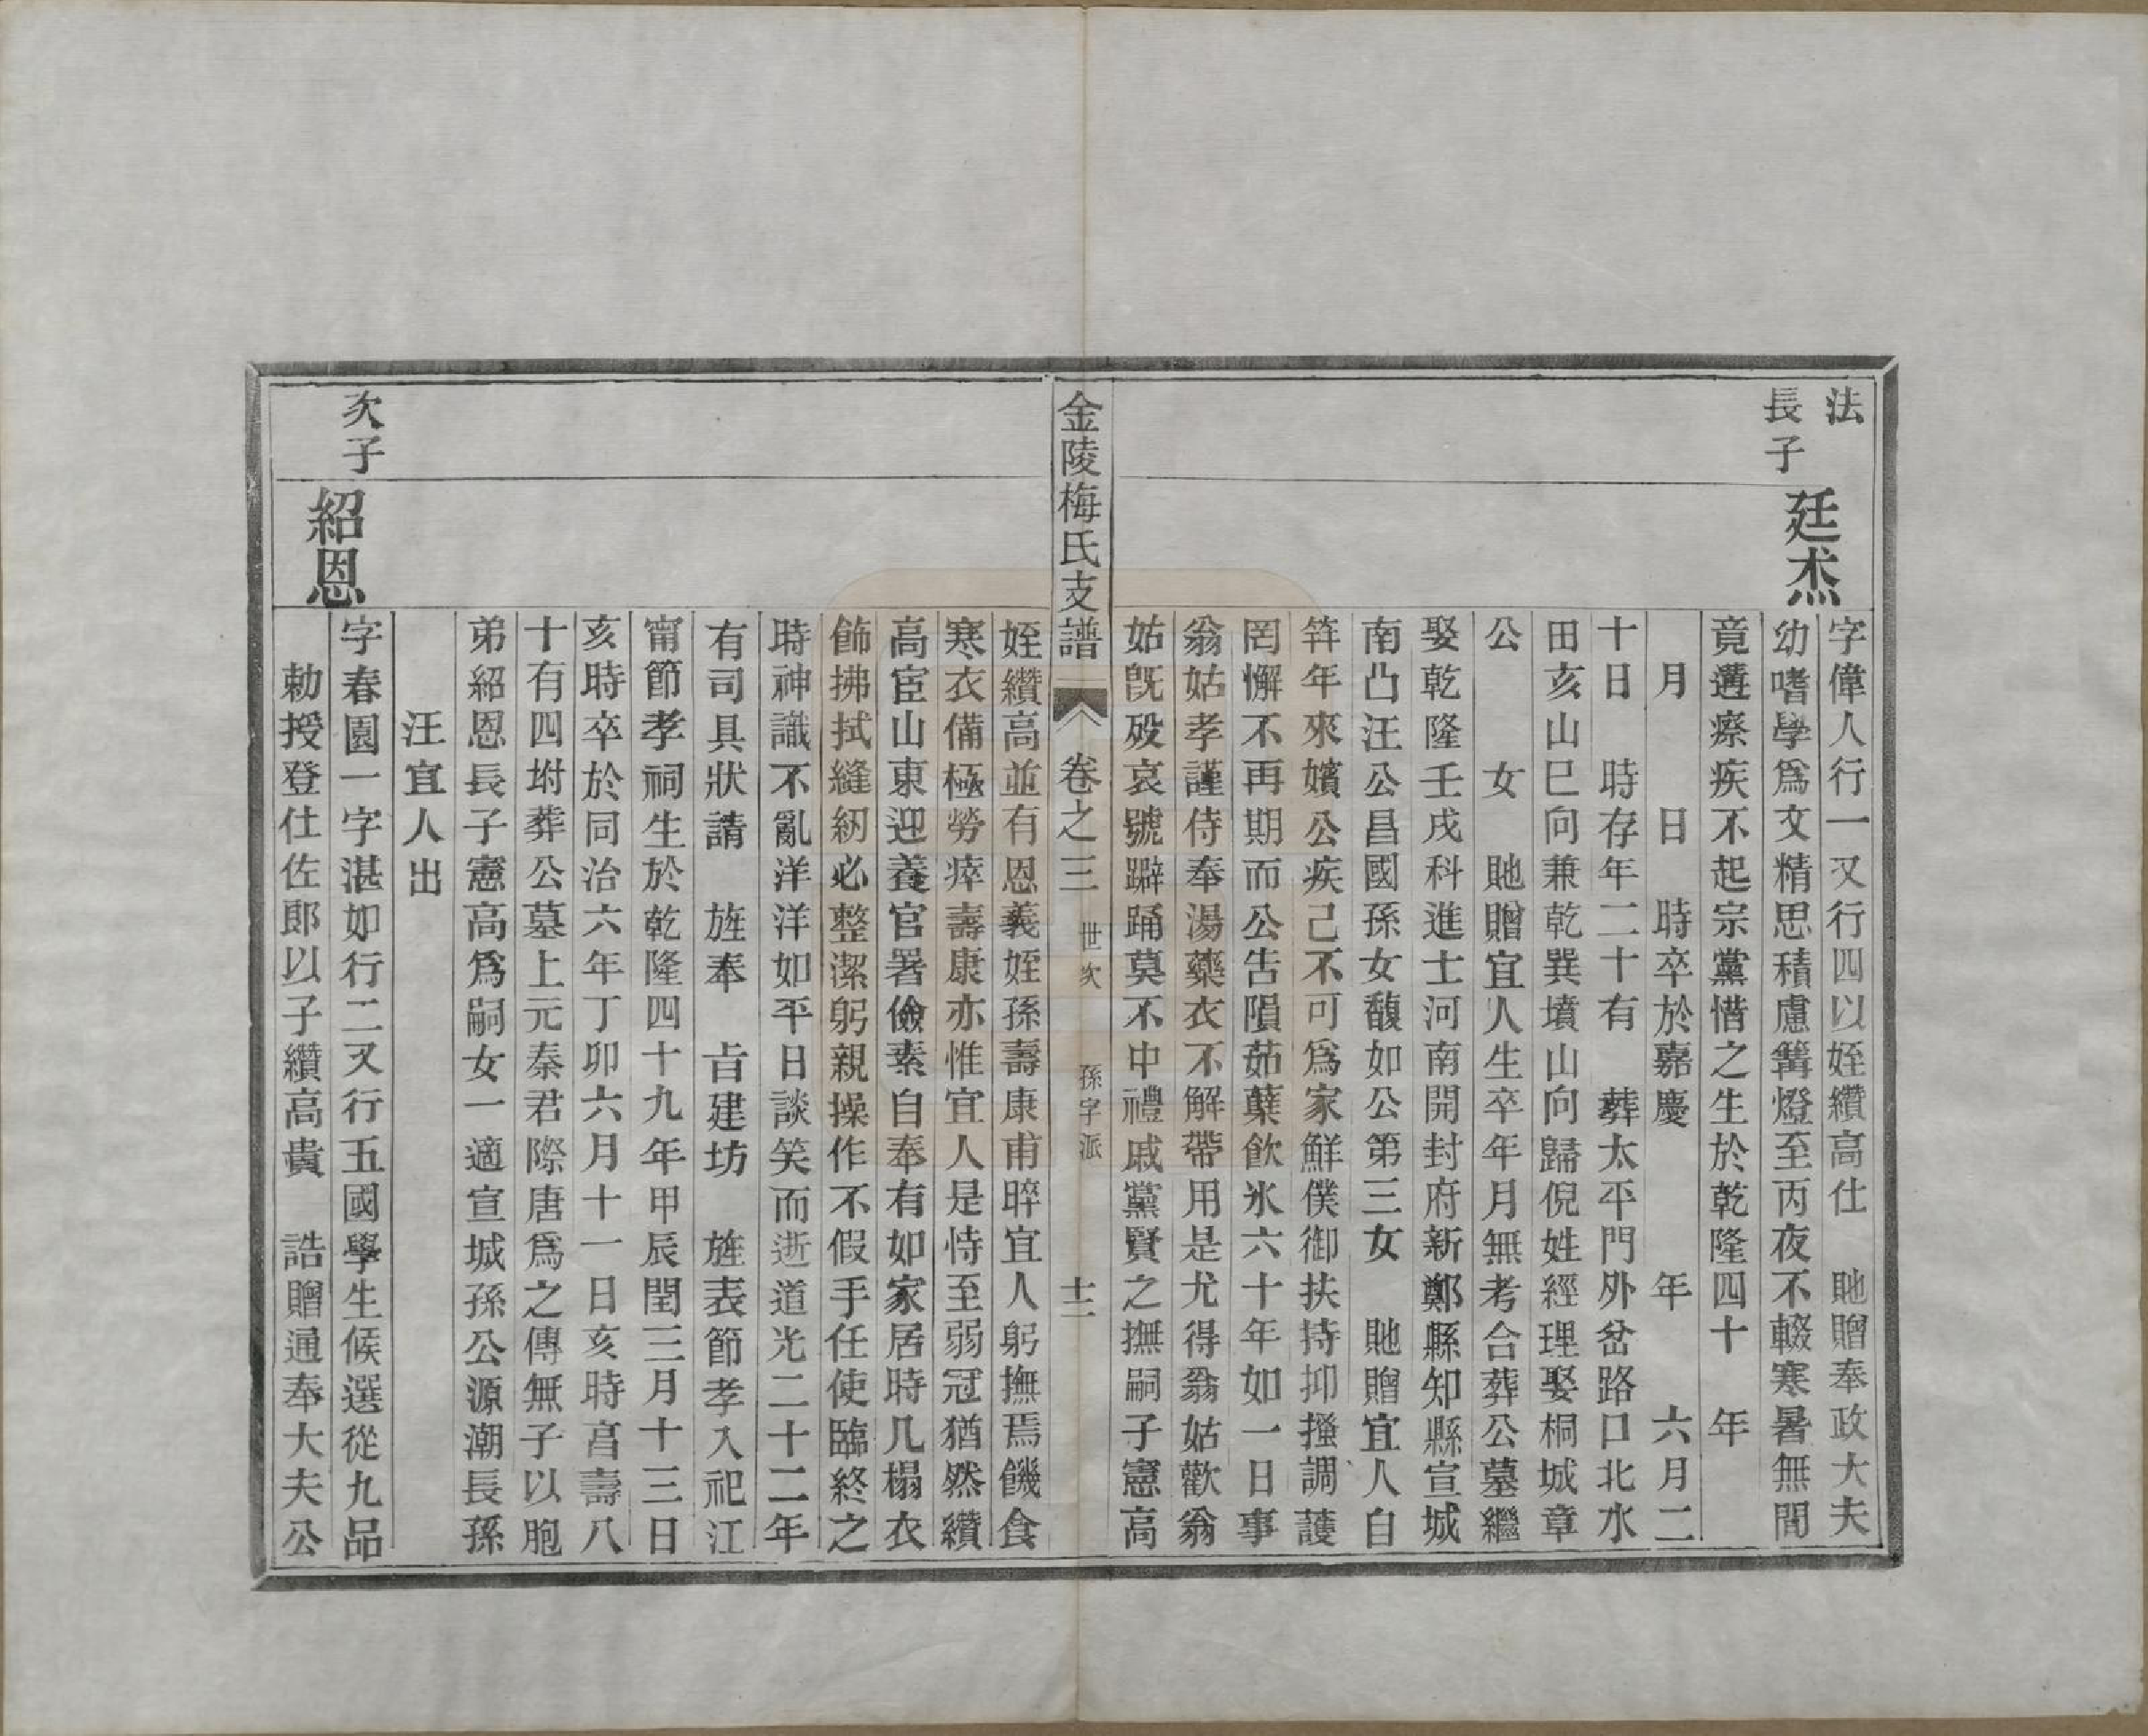 法
長子
廷杰
字偉人行一又行四以姪纘高仕　貤贈奉政大夫
幼嗜學爲文精思積慮篝燈至丙夜不輟寒暑無間
竟遘瘵疾不起宗黨惜之生於乾隆四十　年
月　日　時卒於嘉慶　年　六月二
十日　時存年二十有　葬太平門外岔路口北水
田亥山巳向兼乾巽墳山向歸倪姓經理娶桐城章
公　女　貤贈宜人生卒年月無考合葬公墓繼
娶乾隆壬戌科進士河南開封府新鄭縣知縣宣城
南凸汪公昌國孫女馥如公第三女　貤贈宜人自
筓年來嬪公疾己不可爲家鮮僕御扶持抑搔調護
罔懈不再期而公告隕茹蘗飲氷六十年如一日事
翁姑孝謹侍奉湯藥衣不解帶用是尤得翁姑歡翁
姑旣歿哀號躃踊莫不中禮戚黨賢之撫嗣子憲高
金陵梅氏支譜　卷之三　世次　孫字派　十二
姪纘高並有恩義姪孫壽康甫晬宜人躬撫焉饑食
寒衣備極勞瘁壽康亦惟宜人是恃至弱冠猶然纘
高宦山東迎養官署儉素自奉有如家居時几榻衣
飾拂拭縫紉必整潔躬親操作不假手任使臨終之
時神識不亂洋洋如平日談笑而逝道光二十二年
有司具狀請　旌奉　旨建坊　旌表節孝入祀江
甯節孝祠生於乾隆四十九年甲辰閏三月十三日
亥時卒於同治六年丁卯六月十一日亥時享壽八
十有四坿葬公墓上元秦君際唐爲之傳無子以胞
弟紹恩長子憲高爲嗣女一適宣城孫公源潮長孫
汪宜人出
次子
紹恩
字春園一字湛如行二又行五國學生候選從九品
勅授登仕佐郎以子纘高貴　誥贈通奉大夫公